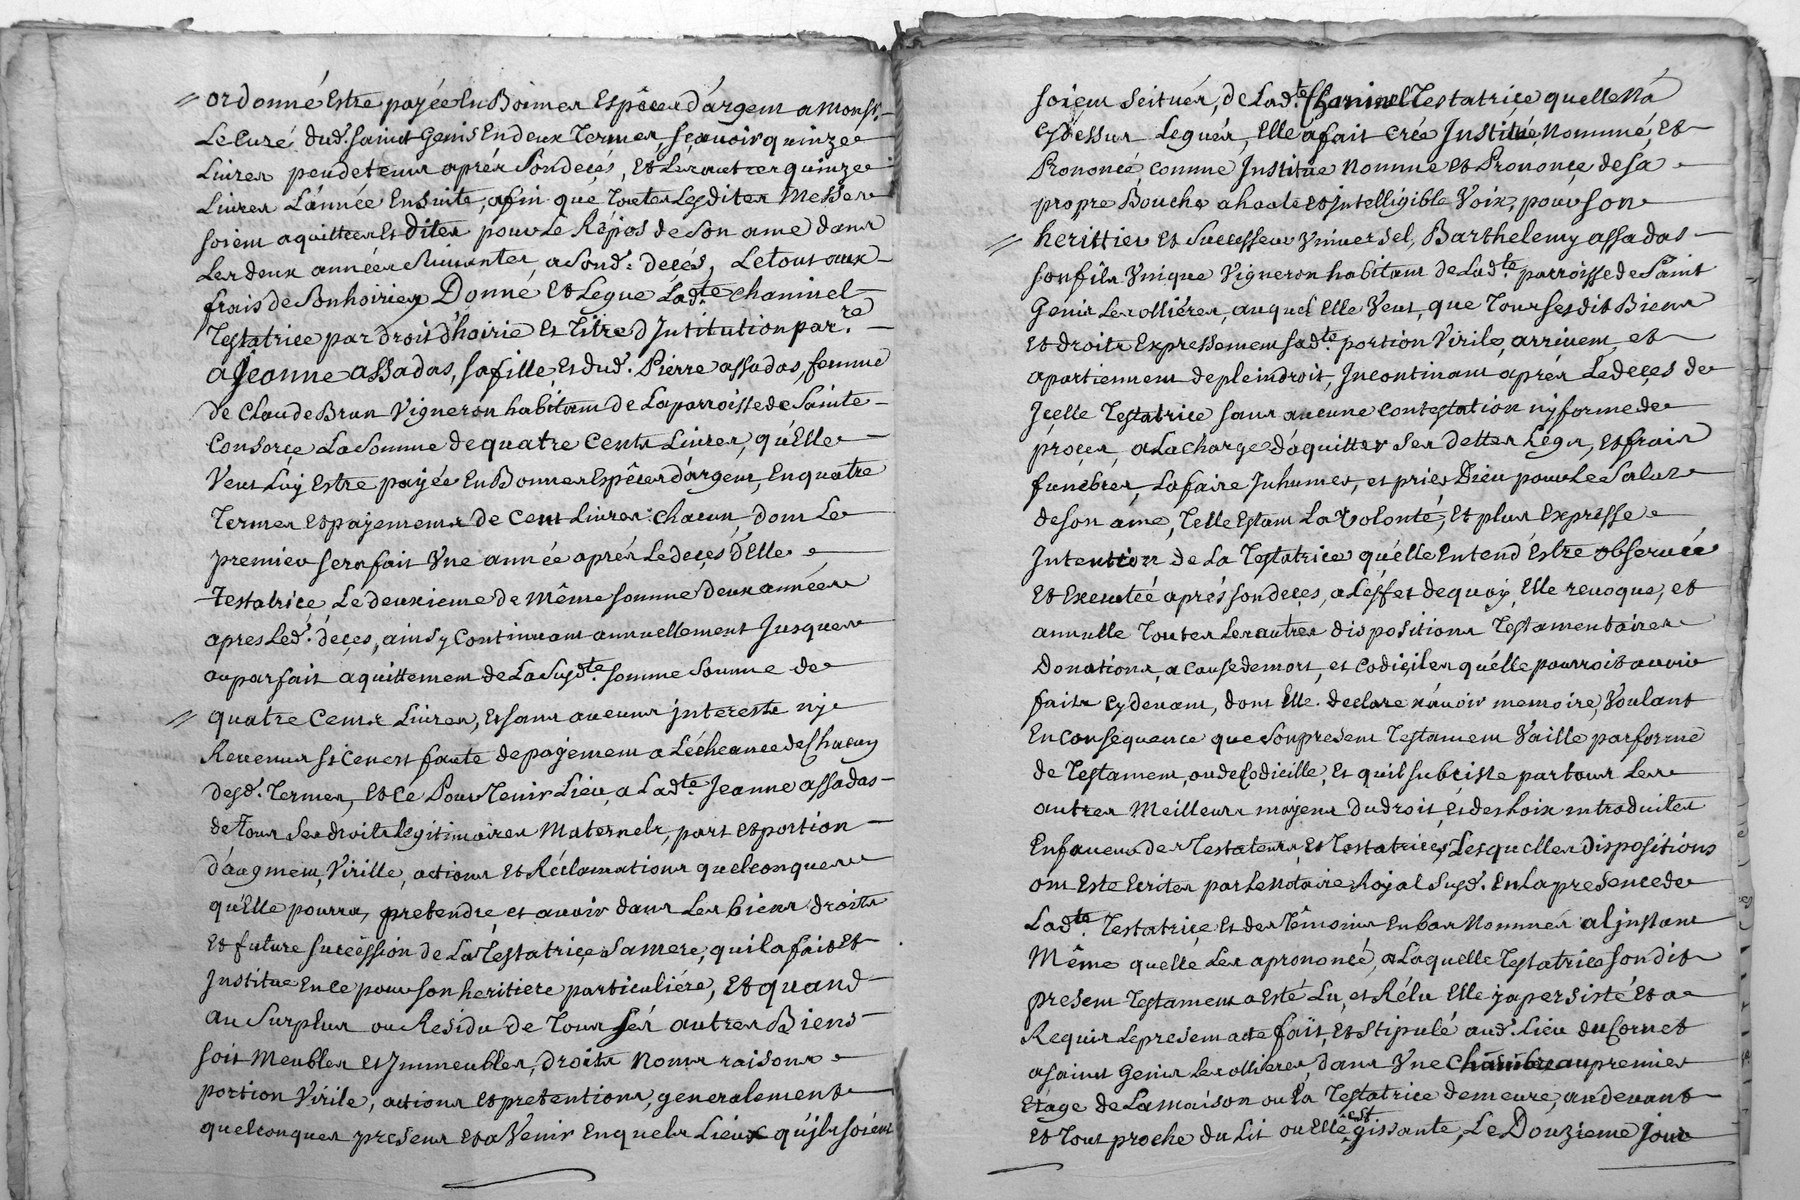 ordonné Estre payée En Bonnes Espêces d'argent a Monsr.
Le Curé dud. saint Genis En deux Termes, sçavoir quinze
Livres peu detems aprés Son deçés, Et Les autres quinze
Livres L'année Ensuite, afin que Toutes Lesdites Messes
soient aquittées Et dites pour Le Répos de Son ame dans
Les deux années Suivantes a Sond. decés, Le tout aux
frais de Son hoirie, Donne Et Legue Ladte. Chaminel
Testatrice par droit d'hoirie Et Titre d'Institution parre.
a Jeanne assadas, sa fille, Et dud. Pierre assadas, femme
de Claude Brun Vigneron habitant de La parroisse de Sainte
Consorçe La Somme de quatre Cents Livres, qu'Elle
Veut Luy Estre payée En Bonnes Espêces d'argent, En quatre
Termes Et payements de Cent Livres chacun, dont Le
premier sera fait Vne année aprés Le deçés d'Elle
Testatrice, Le deuxieme de Même somme deux années
apres Led. deçes, ainsy Continuant annuellement Jusques
au parfait aquittement de La Susdte. somme Somme de
quatre Cents Livres, Et sans aucuns interests ny
Revenus si ce n'est faute de payement a L'écheance de Chacun
desd. Termes, Et ce Pour Tenir Lieu a Ladte. Jeanne assadas
de Tous Ses droits Legitimaires Maternels, part Et portion
d'augment, Virille, actions Et Réclamations quelconques
qu'Elle pourra, pretendre et avoir dans Les biens droits
Et future succession de La Testatrice Sa mere, qui la fait Et
Institue En ce pour son heritiere particuliére, Et quand
au Surplus ou Residu de Tous ses autres Biens
soit Meubles Et Immeubles, droits Noms raisons
portion Virile, actions Et pretentions, generalement
quelconques presens Et a Venir En quels Lieux qu'ils soient
soient Seitués, de Ladte. Chaminel Testatrice quelle N'a
Cydessus Legués, Elle a fait Crée Institué, Nommé, Et
Prononcé, comme Institue Nomme Et Prononçe de sa
propre Bouche a haute et intelligible Voix, pour son
herittier Et Successeur Vniversel, Barthelemy assadas
son fils Vnique Vigneron habitant de Ladte. parroisse de Saint
Genis Les ollières, auquel Elle Veut, que Tous Sesdit Biens
Et droits Expressement sadte. portion Virile, arrivent et
apartiennent de plein droit, Incontinant aprés Le deçes de
Icelle Testatrice sans aucune Contestation ny forme de
proçes, a La Charge d'aquitter Ses dettes Legs, Et frais
funebres, La faire Inhumer, et prier Dieu pour Le Salut
de son ame, Telle Estant La Volonté, Et plus Expresse
Intention de La Testatrice qu'elle Entend Estre observée
Et Executée aprés son deçes, a L'effet dequoy, Elle revoque, et
annulle Toutes Les autres dispositions Testamentaires
Donations, a Cause de mort, et Codiciles qu'elle pourroit avoir
faits Cy devant, dont Elle declare n'avoir memoire, Voulant
En Consequence que Son present Testament Vaille par forme
de Testament, ou de Codicille, Et qu'il subsiste par tous Les
autres Meilleurs moyens du droit, Et des Loix introduites
En faveur des Testateurs, Et Testatrices, Lesquelles Dispositions
ont Esté Ecrites par Le Notaire Royal Susd. En La presence de
Ladte. Testatrice Et des Témoins En bas Nommés a L'instant
Même quelle Les a prononcé, a Laquelle Testatrice son dit
present Testament a Esté Lu, et Rélu Elle y a persisté Et a
Requis Le present acte fait, Et Stipulé aud. Lieu du Cornet
a saint Genis Les ollieres, dans Vne Chambre au premier
Etage de La maison ou La Testatrice demeure, au devant
Et Tout proche du Lit ou Elle est gissante, Le Douzieme jour